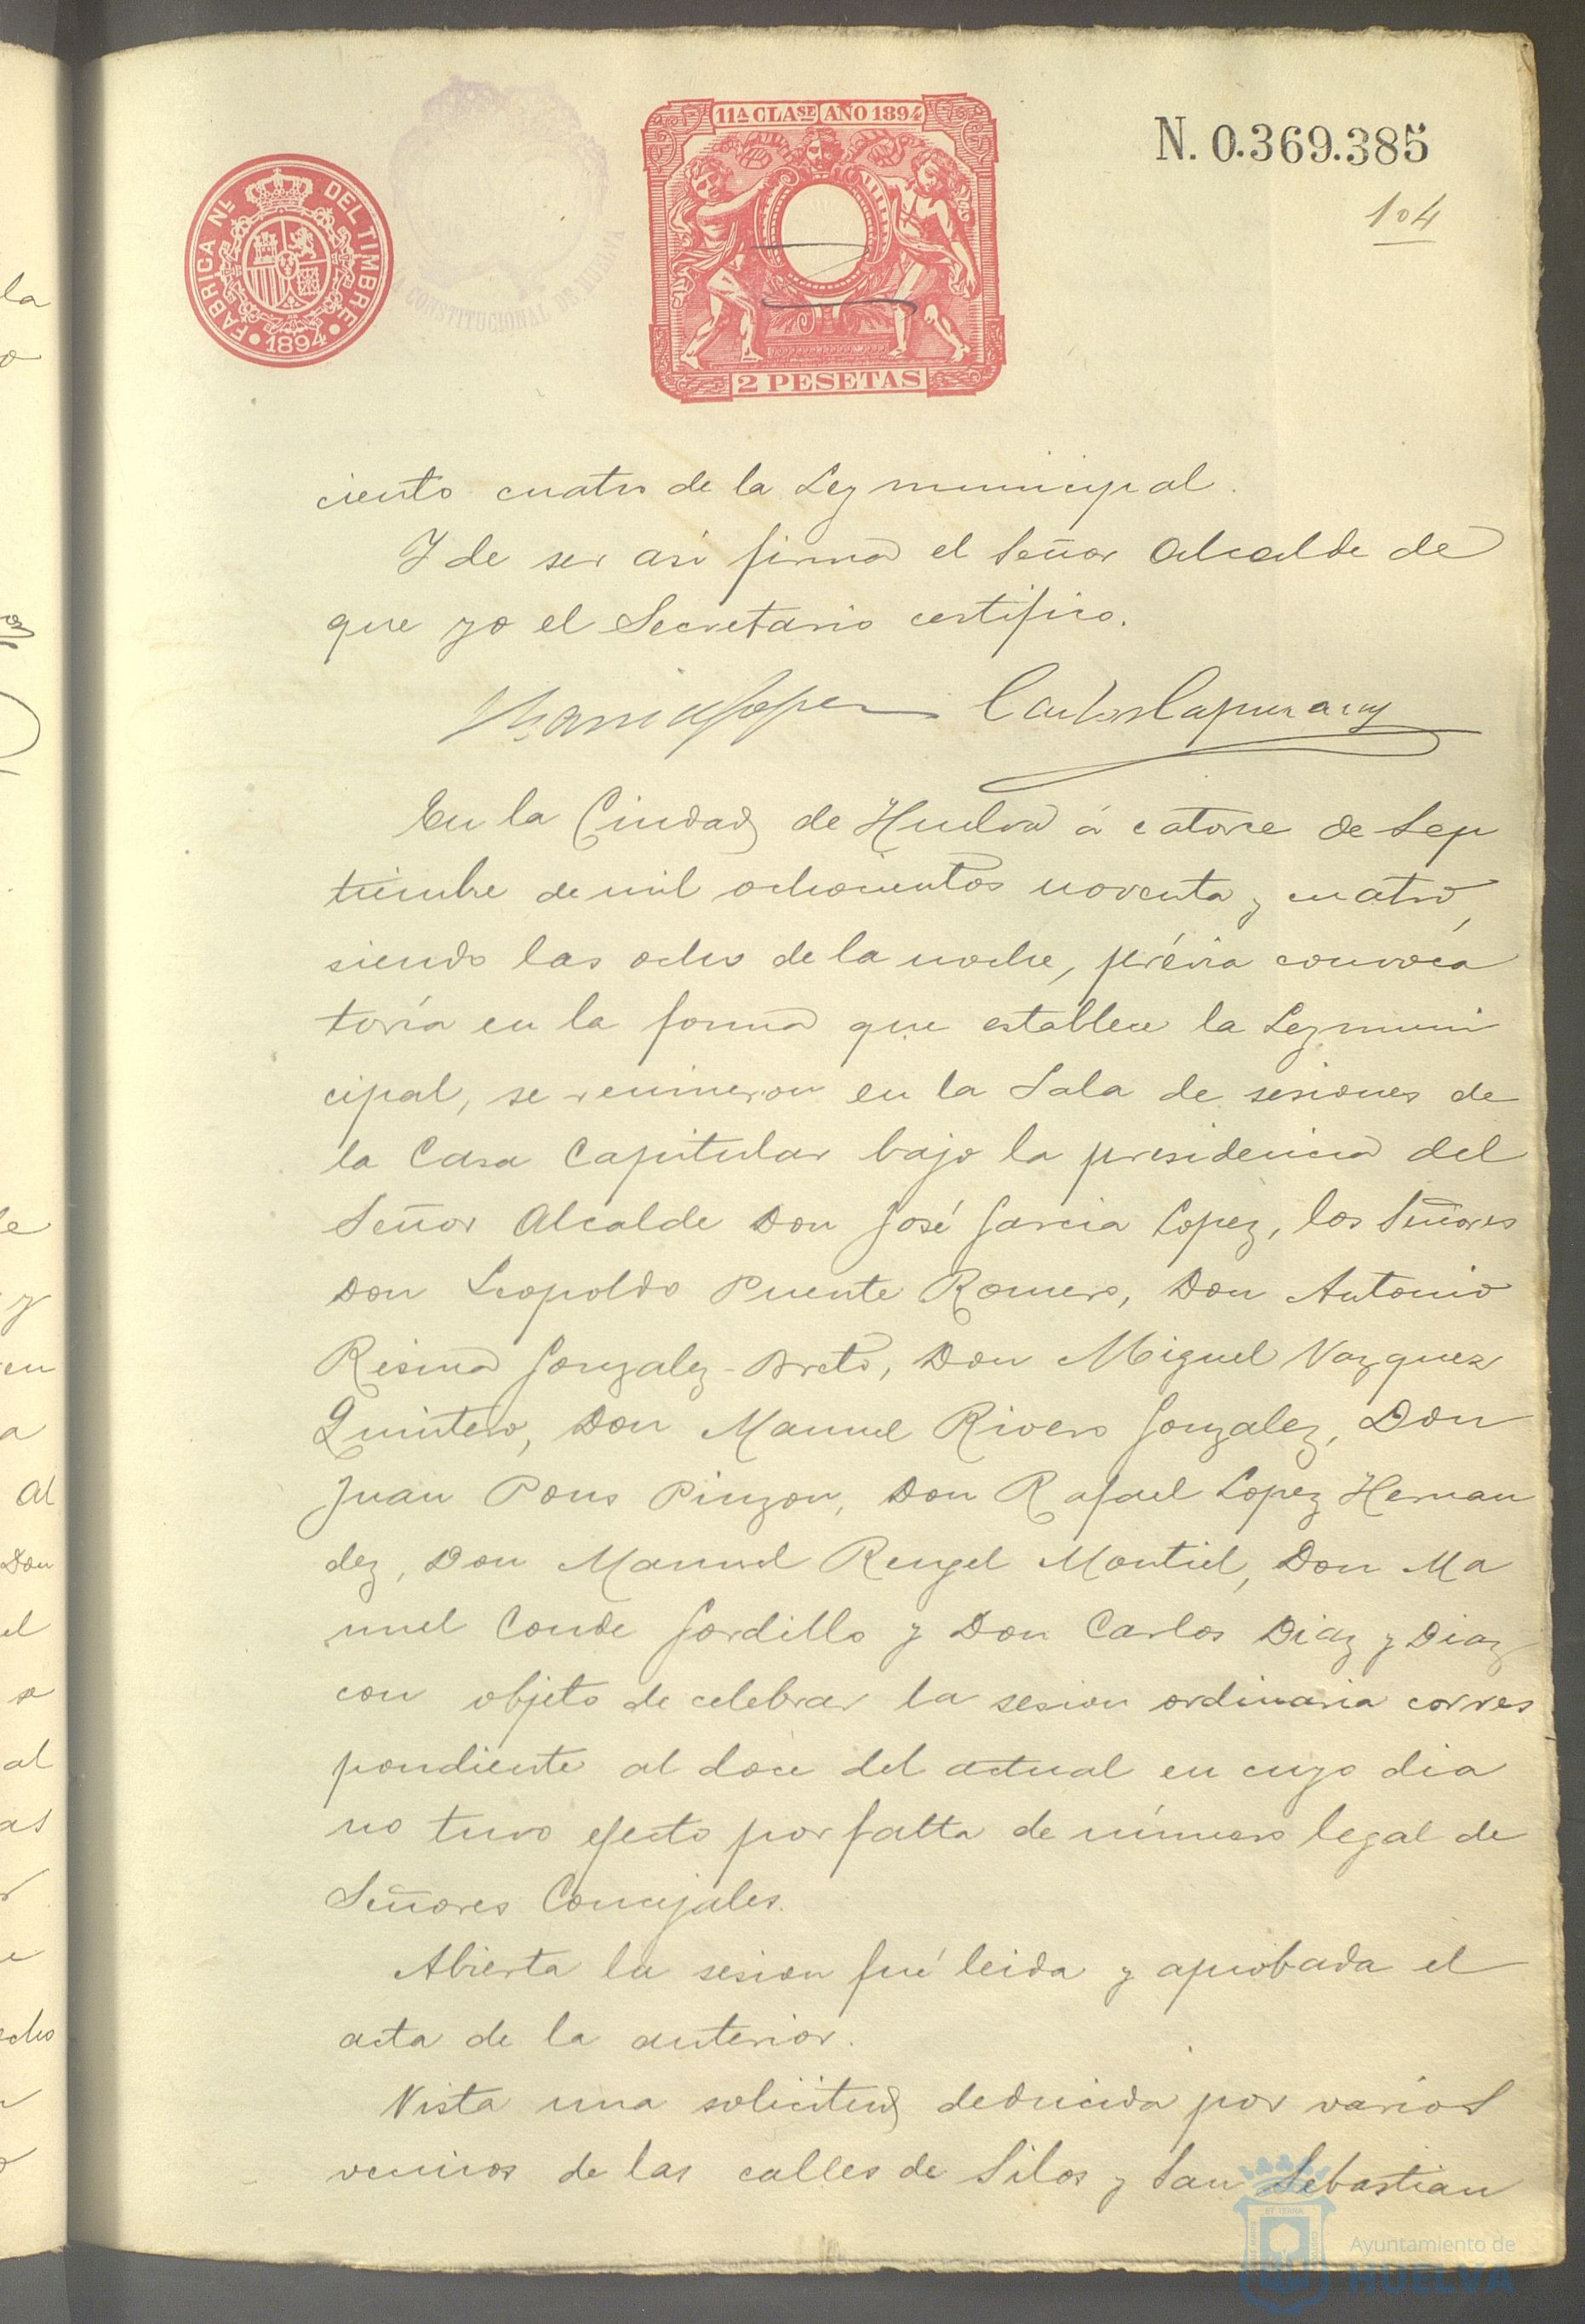 11ª CLASE AÑO 1894
N. 0.369.385
104
FABRICA Nˡ. DEL TIMBRE
1894
CONSTITUCIONAL DE HUELVA
2 PESETAS
ciento cuatro de la Ley municipal.
Y de ser así firma el Señor Alcalde de
que yo el Secretario certifico.
Garcia Lopez
En la Ciudad de Huelva á catorce de Sep
tiembre de mil ochocientos noventa y cuatro,
siendo las ocho de la noche, prévia convoca
toría en la forma que establece la Ley muni
cipal, se reunieron en la Sala de sesiones de
la Casa Capitular bajo la presidencia del
Señor Alcalde Don José Garcia Lopez, los Señores
Don Leopoldo Puente Romero, Don Antonio
Resina Gonzalez-Breto, Don Miguel Vazquez
Quintero, Don Manuel Rivero Gonzalez, Don
Juan Pons Pinzon, Don Rafael Lopez Hernan
dez, Don Manuel Rengel Montiel, Don Ma
nuel Conde Gordillo y Don Carlos Diaz y Diaz
con objeto de celebrar la sesion ordinaria corres
pondiente al doce del actual en cuyo dia
no tuvo efecto por falta de número legal de
Señores Concejales.
Abierta la sesion fué leida y aprobada el
acta de la anterior.
Vista una solicitud deducida por varios
vecinos de las calles de Silos y San Sebastian
Ayuntamiento de
HUELVA